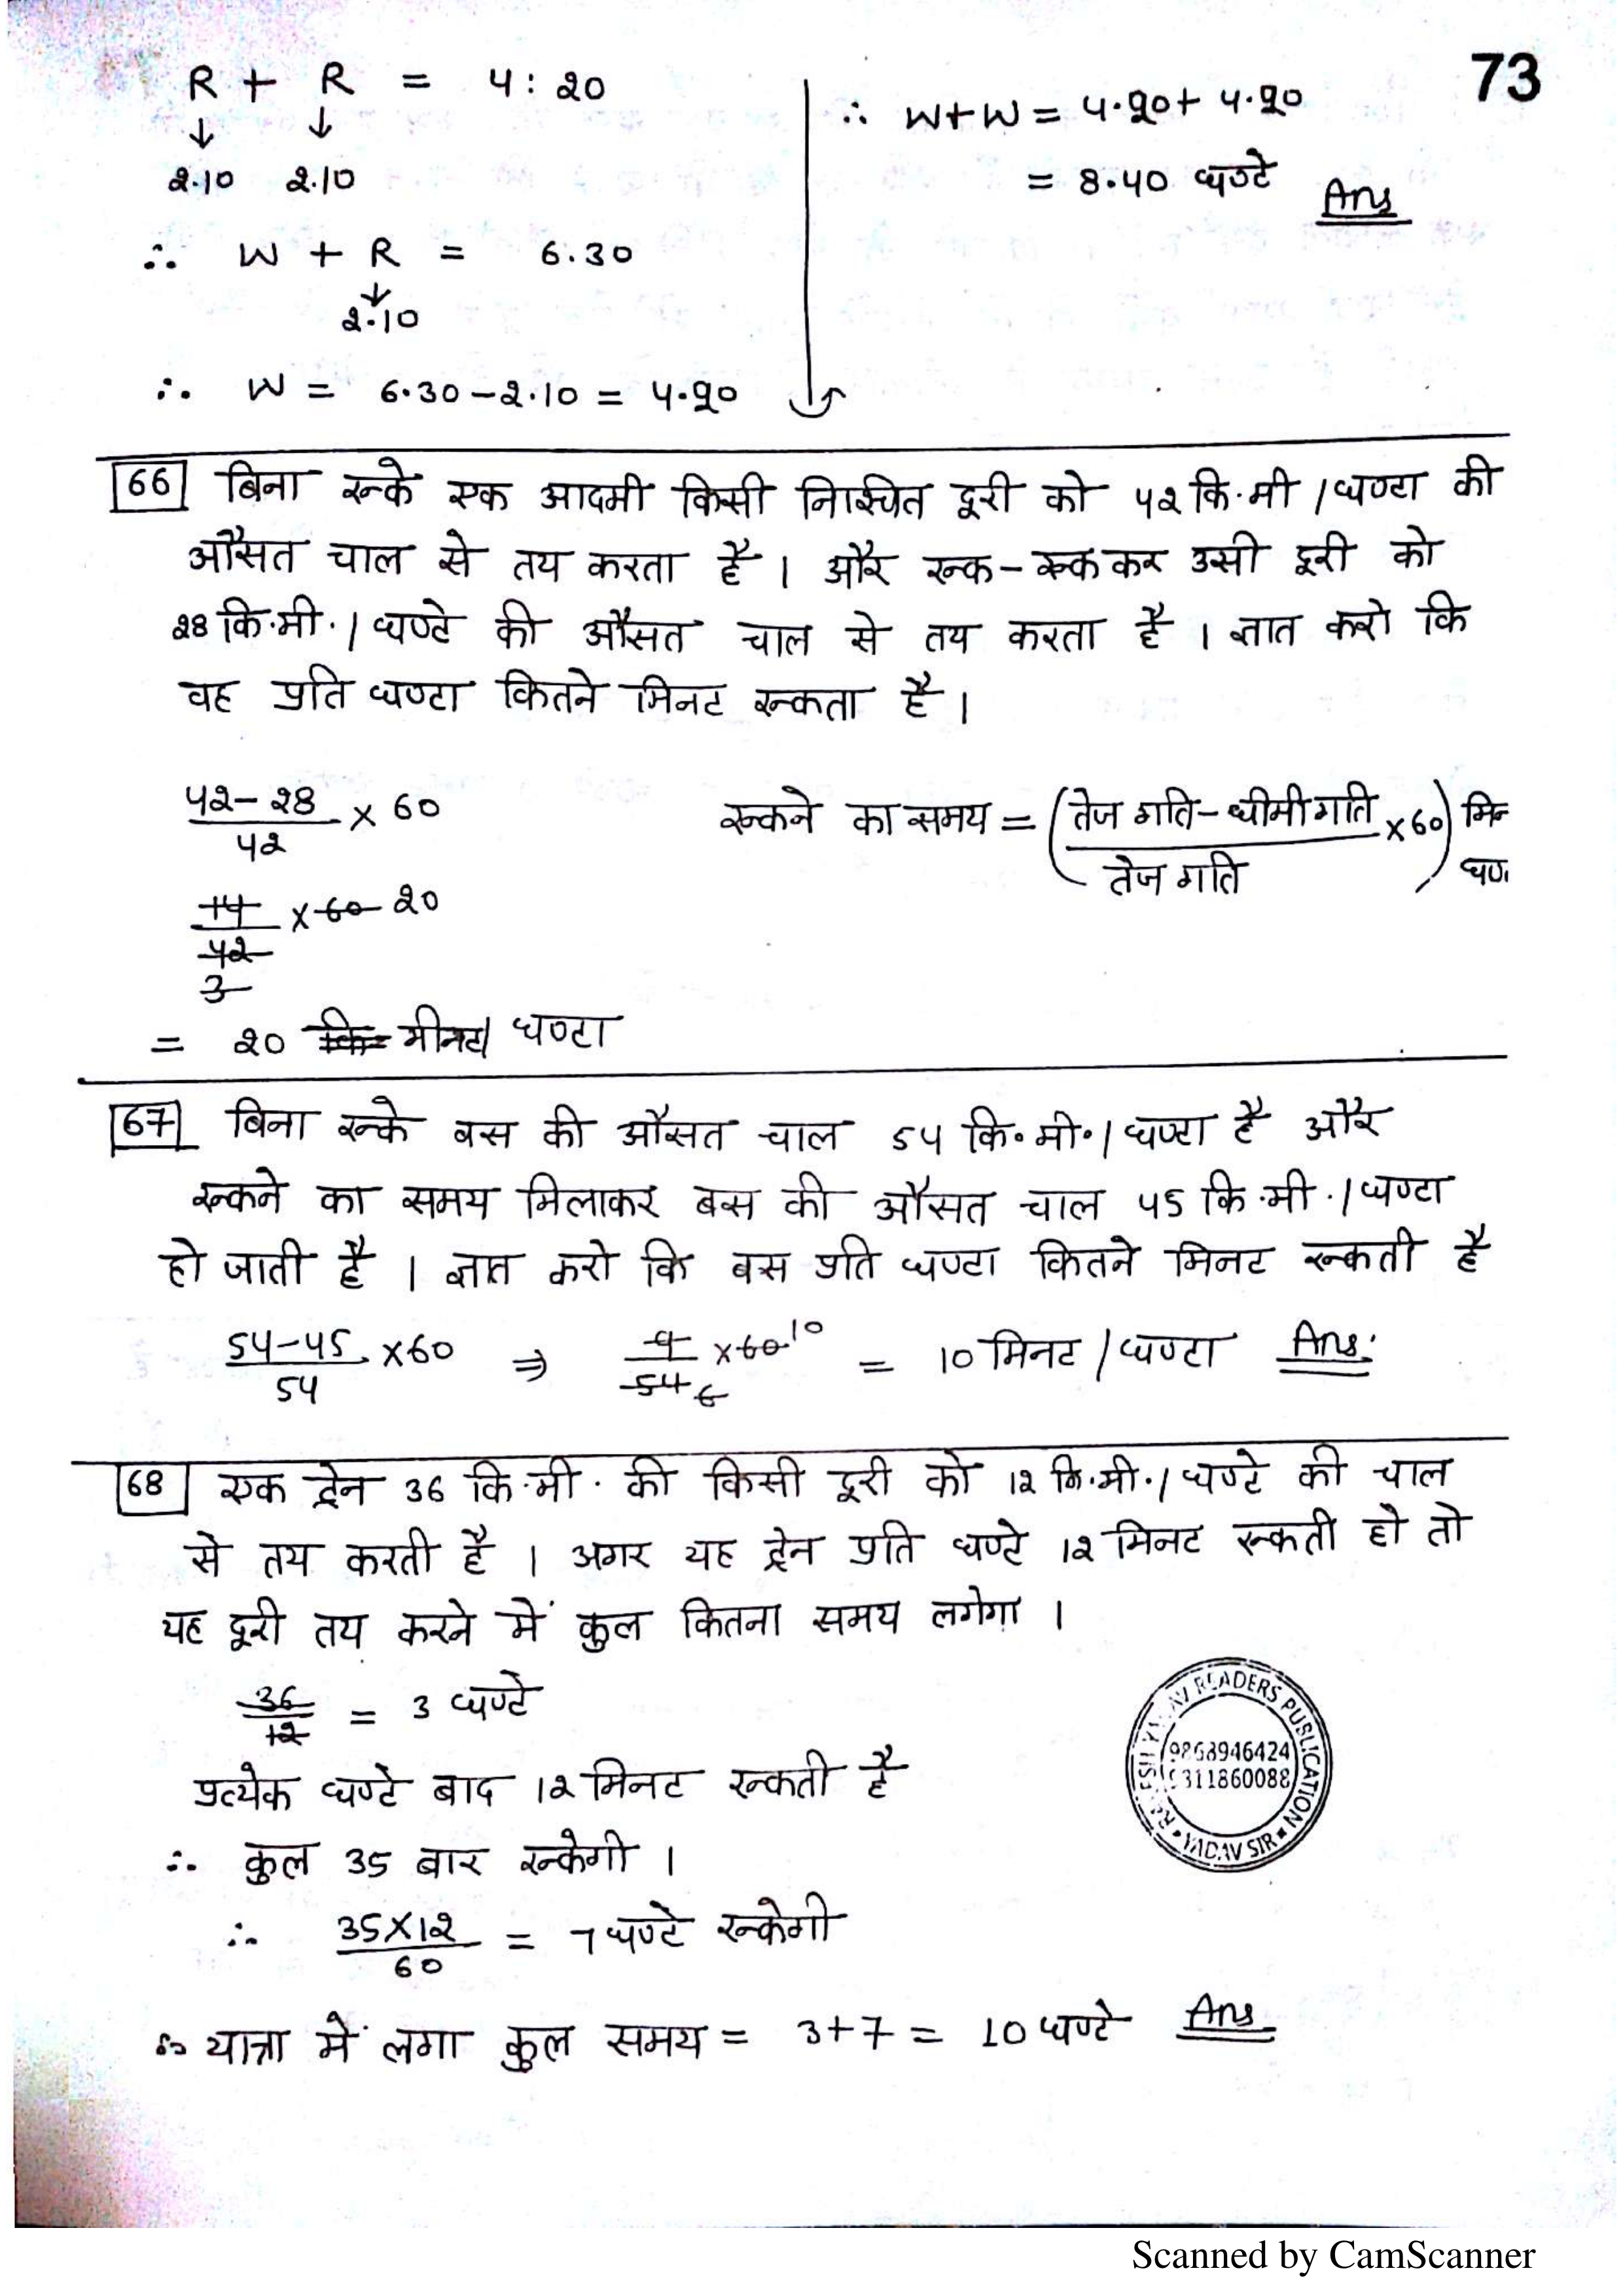 73
R + R = 4:20
↓ ↓
2.10 2.10
∴ W + R = 6.30
↓
2.10
∴ W = 6.30 - 2.10 = 4.20
∴ W+W = 4.20 + 4.20
= 8.40 घण्टे Ans
66 बिना रूके एक आदमी किसी निश्चित दूरी को 42 कि.मी / घण्टा की
औसत चाल से तय करता है । और रूक - रूक कर उसी दूरी को
28 कि.मी. / घण्टे की औसत चाल से तय करता है । ज्ञात करो कि
वह प्रति घण्टा कितने मिनट रूकता है ।
42-28/42 × 60
रूकने का समय = (तेज गति - धीमी गति/तेज गति × 60) मिन
घण
14/42 × 60 20
3
= 20 मीनट/ घण्टा
67 बिना रूके बस की औसत चाल 54 कि॰मी॰/घण्टा है और
रूकने का समय मिलाकर बस की औसत चाल 45 कि.मी./घण्टा
हो जाती है । ज्ञात करो कि बस प्रति घण्टा कितने मिनट रूकती है
54-45/54 × 60 ⇒ 9/54 6 × 60 10 = 10 मिनट / घण्टा Ans.
68 एक ट्रेन 36 कि.मी. की किसी दूरी को 12 कि.मी./ घण्टे की चाल
से तय करती है । अगर यह ट्रेन प्रति घण्टे 12 मिनट रूकती हो तो
यह दूरी तय करने में कुल कितना समय लगेगा ।
36/12 = 3 घण्टे
प्रत्येक घण्टे बाद 12 मिनट रूकती है
∴ कुल 35 बार रूकेगी ।
∴ 35×12/60 = 7 घण्टे रूकेगी
∴ यात्रा में लगा कुल समय = 3+7 = 10 घण्टे Ans
READERS PUBLICATION
9868946424
9311860088
YADAV SIR
Scanned by CamScanner